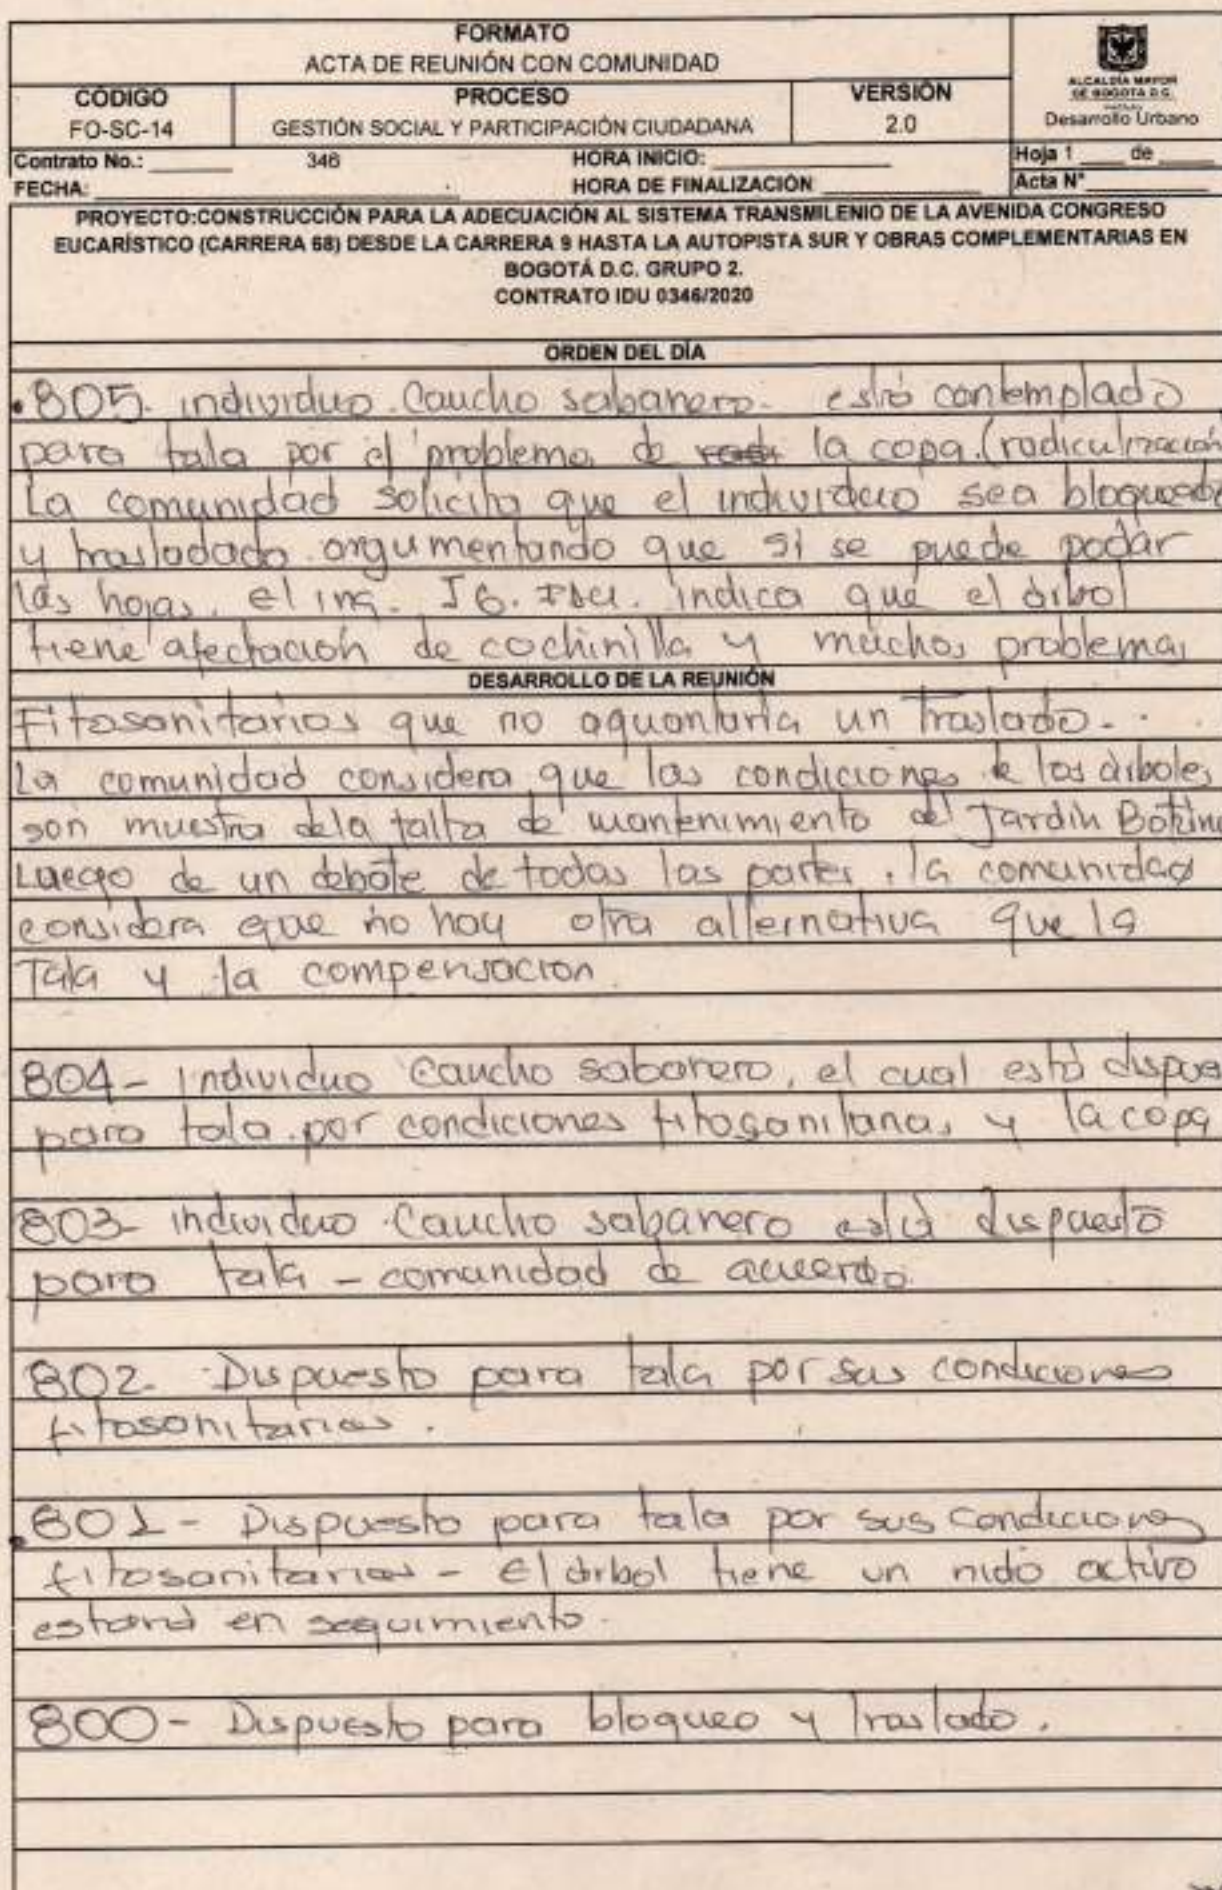 FORMATO
ACTA DE REUNIÓN CON COMUNIDAD
CÓDIGO
FO-SC-14
PROCESO
GESTIÓN SOCIAL Y PARTICIPACIÓN CIUDADANA
VERSIÓN
2.0
ALCALDÍA MAYOR
DE BOGOTÁ D.C.
Desarrollo Urbano
Contrato No.: 346 HORA INICIO: Hoja 1 de
FECHA: HORA DE FINALIZACIÓN Acta N°
PROYECTO:CONSTRUCCIÓN PARA LA ADECUACIÓN AL SISTEMA TRANSMILENIO DE LA AVENIDA CONGRESO
EUCARÍSTICO (CARRERA 68) DESDE LA CARRERA 9 HASTA LA AUTOPISTA SUR Y OBRAS COMPLEMENTARIAS EN
BOGOTÁ D.C. GRUPO 2.
CONTRATO IDU 0346/2020
ORDEN DEL DÍA
.805- individuo Caucho sabanero- está contemplado
para tala por el problema de la copa. (radiculización
La comunidad solicita que el individuo sea bloqueado
y trasladado argumentando que si se puede podar
las hojas. el ing. indica que el árbol
tiene afectación de cochinilla y muchos problemas
DESARROLLO DE LA REUNIÓN
Fitosanitarios que no aguantaria un Traslado-
La comunidad considera que las condiciones de los árboles
son muestra dela falta de mantenimiento del Jardín Botáni
Luego de un debate de todas las partes, la comunidad
considera que no hay otra alternativa que la
Tala y la compensacion.
804- individuo Caucho sabanero, el cual está dispues
para tala por condiciones fitosanitarias y la copa
803- individuo Caucho sabanero está dispuesto
para tala - comunidad de acuerdo.
802- Dispuesto para tala por sus condiciones
fitosanitarias.
.801- Dispuesto para tala por sus condiciones
fitosanitarias - El árbol tiene un nido activo
estará en seguimiento-
800- Dispuesto para bloqueo y traslado.